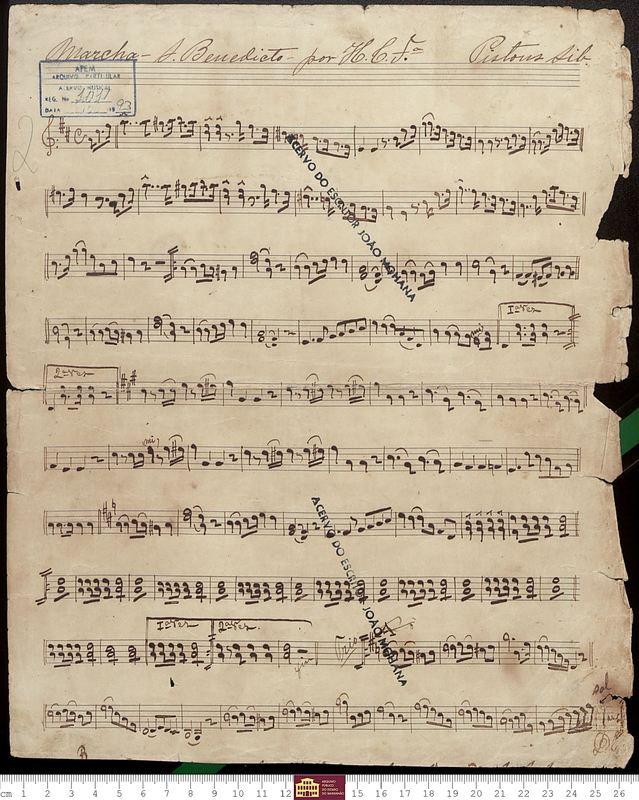 Marcha - S. Benedicto - por H. C. F.ª Pistons Sib.
APEM
ARQUIVO PARTICULAR
ACERVO MUSICAL
REG. No 1011
DATA 19 93
2
ACERVO DO ESCRITOR JOÃO MOHANA
1ª vez
2ª vez
mi
ACERVO DO ESCRITOR JOÃO MOHANA
1ª vez 2ª vez
Trio
Fim
sol
B
D.C.
cm 1 2 3 4 5 6 7 8 9 10 11 12 ARQUIVO PÚBLICO DO ESTADO DO MARANHÃO 15 16 17 18 19 20 21 22 23 24 25 26